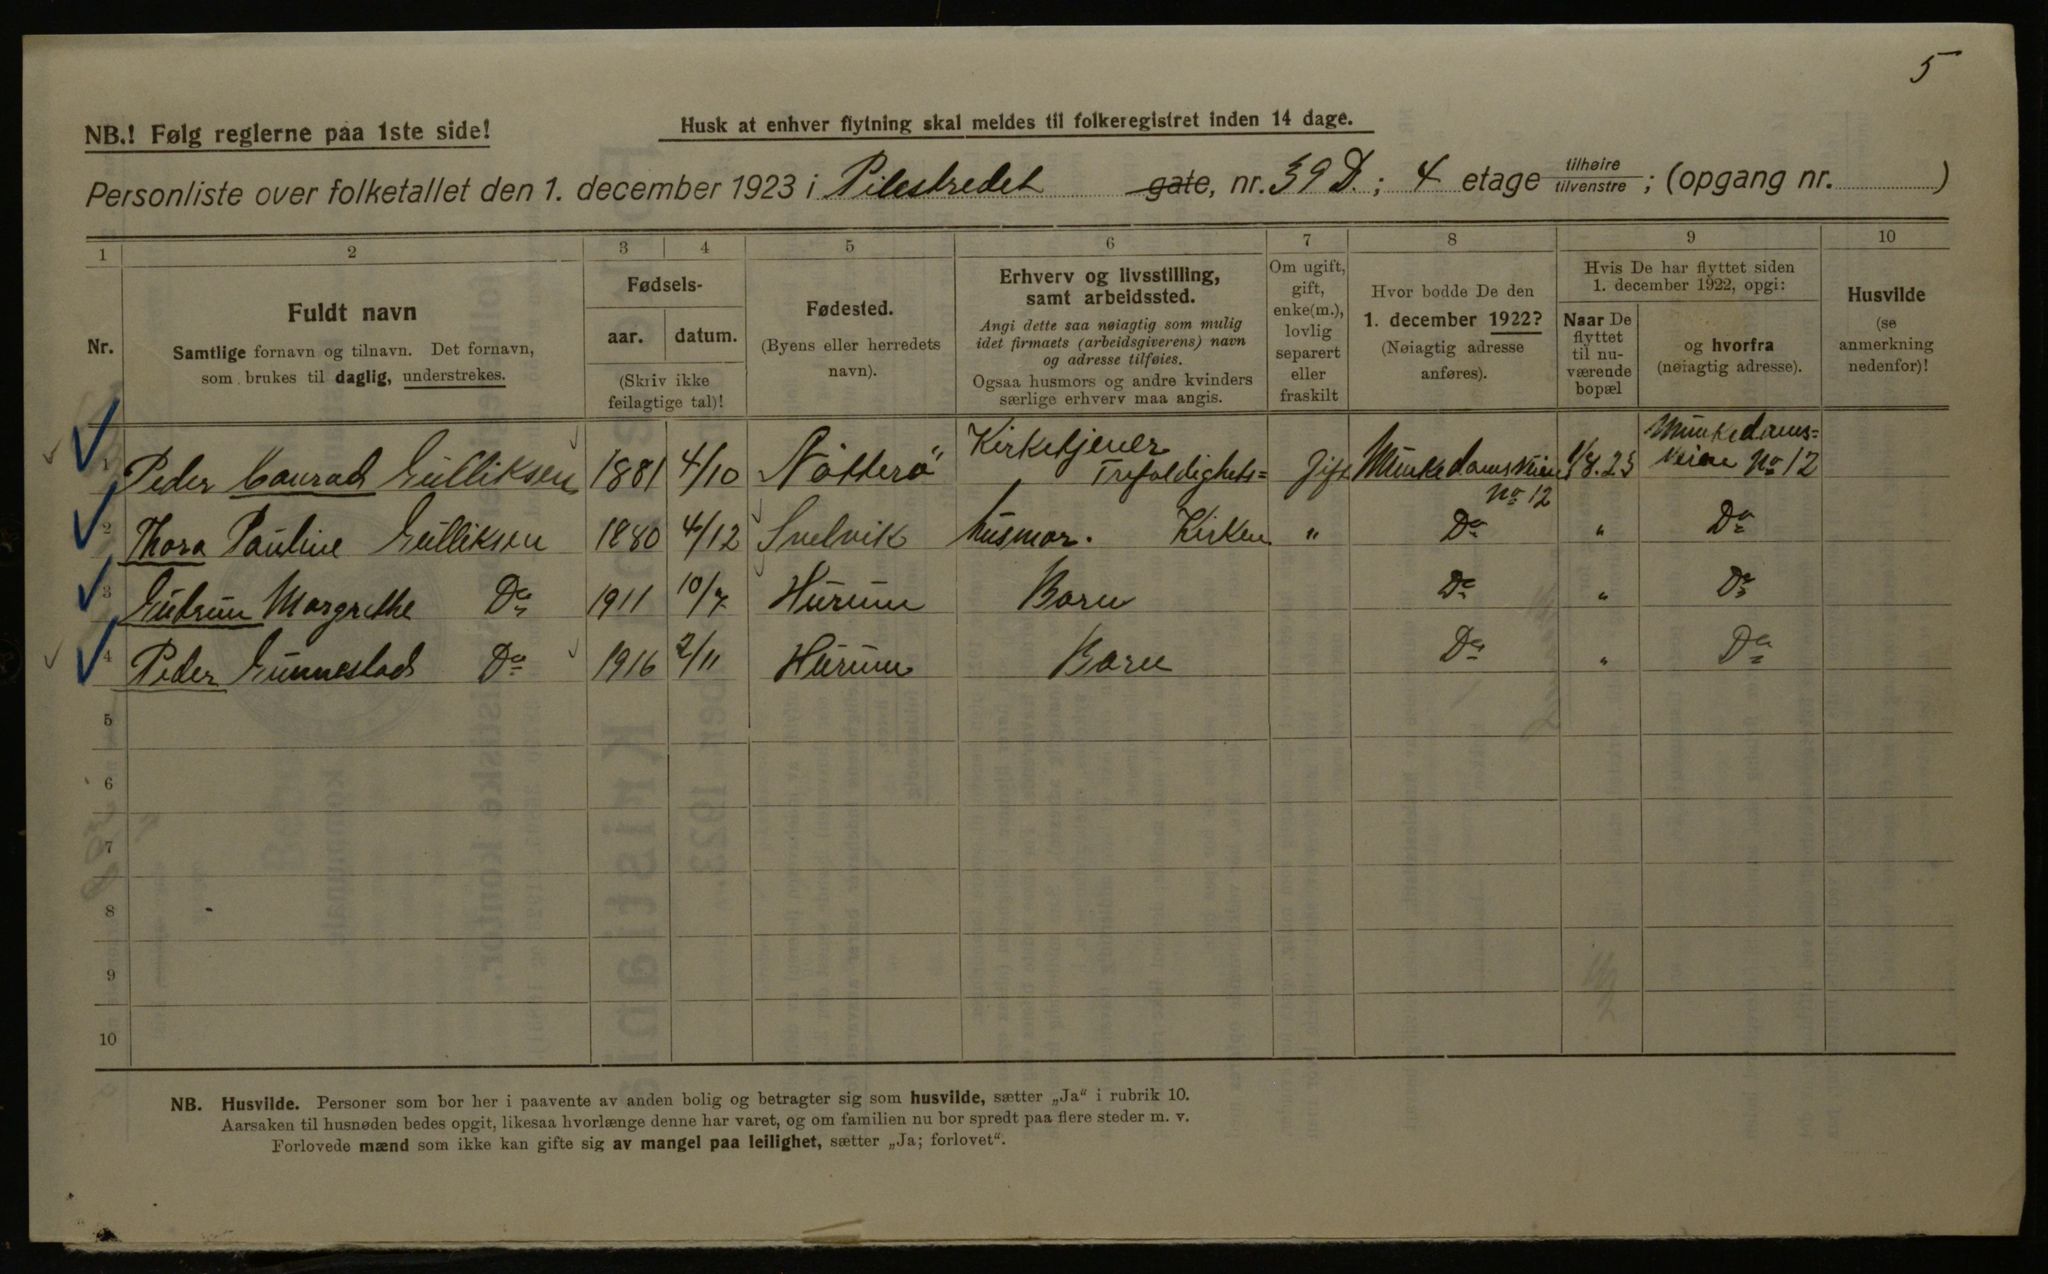 5
NB.! Følg reglerne paa 1ste side!
Husk at enhver flytning skal meldes til folkeregistret inden 14 dage.
Personliste over folketallet den 1. december 1923 i Pilestredet gate, nr. 39 D.; 4 etage tilhøire tilvenstre; (opgang nr. )
1 2 3 4 5 6 7 8 9 10
Nr.
Fuldt navn
Samtlige fornavn og tilnavn. Det fornavn,
som brukes til daglig, understrekes.
Fødsels-
aar. datum.
(Skriv ikke
feilagtige tal)!
Fødested.
(Byens eller herredets
navn).
Erhverv og livsstilling,
samt arbeidssted.
Angi dette saa nøiagtig som mulig
idet firmaets (arbeidsgiverens) navn
og adresse tilføies.
Ogsaa husmors og andre kvinders
særlige erhverv maa angis.
Om ugift,
gift,
enke(m.),
lovlig
separert
eller
fraskilt
Hvor bodde De den
1. december 1922?
(Nøiagtig adresse
anføres).
Hvis De har flyttet siden
1. december 1922, opgi:
Naar De
flyttet
til nu-
værende
bopæl
og hvorfra
(nøiagtig adresse).
Husvilde
(se
anmerkning
nedenfor)!
1 Peder Conrad Gulliksen 1881 4/10 Nötterö Kirketjener Trefoldighets= Gift Munkedamsveien No 12 1/8.23 Munkedams=
veien No 12
2 Thora Pauline Gulliksen 1880 4/12 Svelvik Husmor. Kirken " Do " Do
3 Gudrun Margrethe Do 1911 10/7 Hurum Barn Do " Do
4 Peder Gunnestad Do 1916 2/11 Hurum Barn Do " Do
5
6
7
8
9
10
NB. Husvilde. Personer som bor her i paavente av anden bolig og betragter sig som husvilde, sætter „Ja“ i rubrik 10.
Aarsaken til husnøden bedes opgit, likesaa hvorlænge denne har varet, og om familien nu bor spredt paa flere steder m. v.
Forlovede mænd som ikke kan gifte sig av mangel paa leilighet, sætter „Ja; forlovet“.